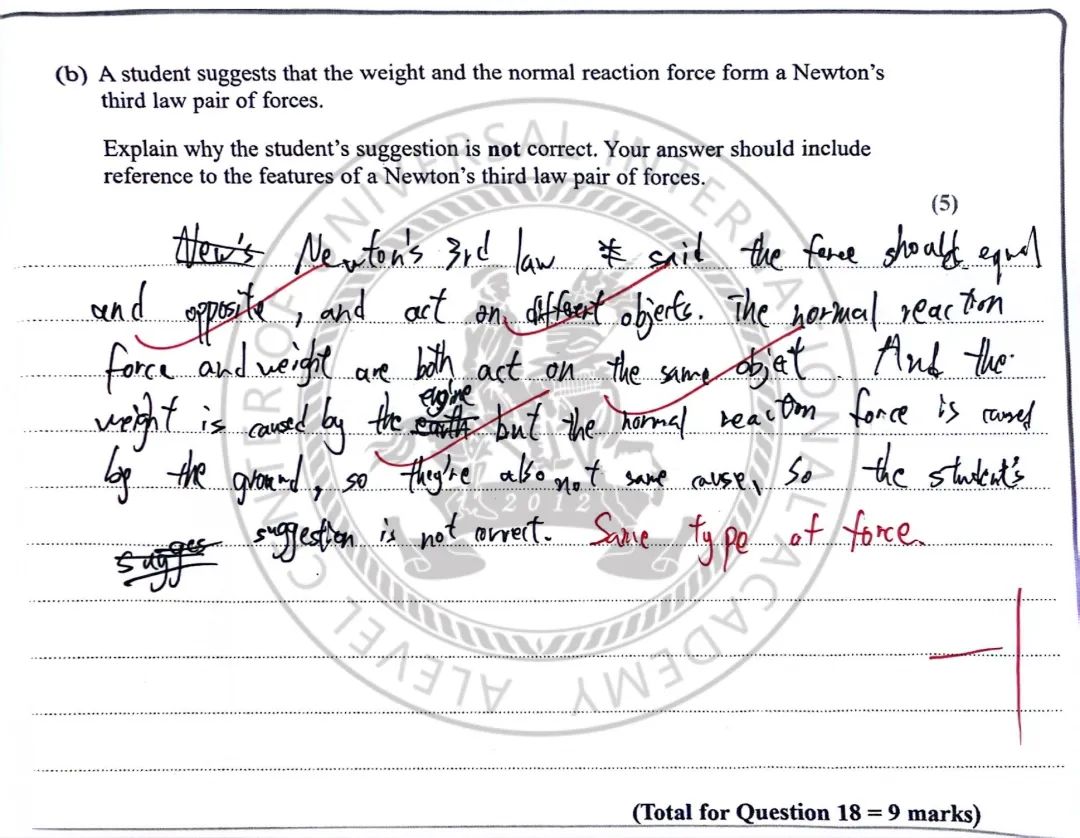 (b) A student suggests that the weight and the normal reaction force form a Newton's
third law pair of forces.
Explain why the student's suggestion is not correct. Your answer should include
reference to the features of a Newton's third law pair of forces.
(5)
New's Newton's 3rd law said the force should equal
and opposite, and act on different objects. The normal reaction
force and weight are both act on the same object And the
engine
weight is caused by the earth but the normal reaction force is caused
by the ground, so they're also not same cause, so the student's
sugges suggestion is not correct. Same type of force.
-1
(Total for Question 18 = 9 marks)
ALEVEL CENTER OF UNIVERSAL INTERNATIONAL ACADEMY
2012